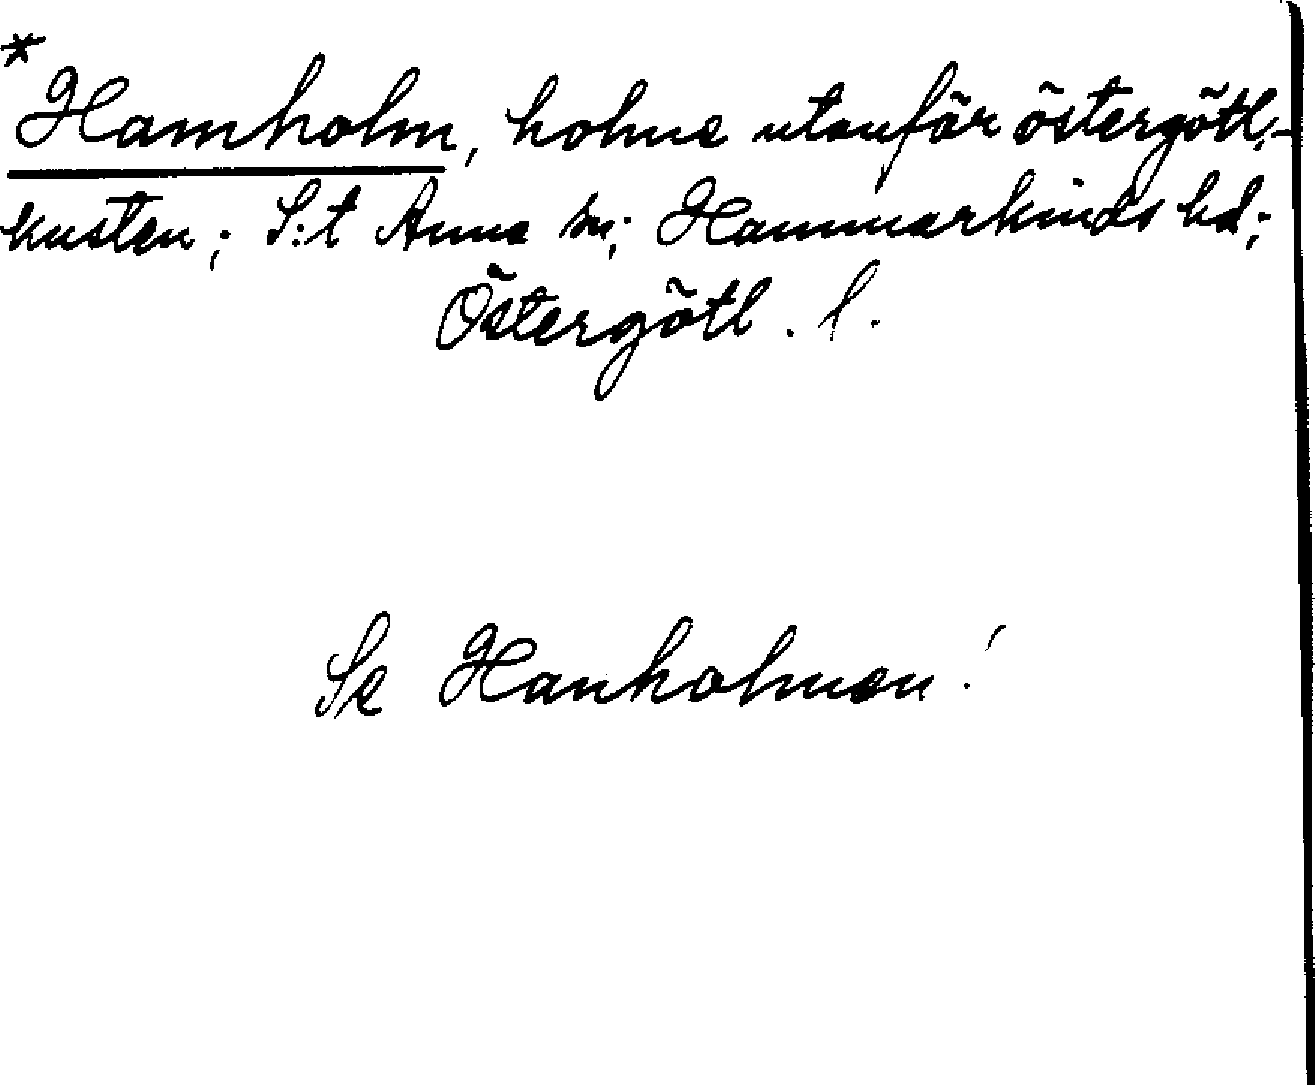 *Hamholm, holme utanför östergötl.-
kusten; S:t Anna sn; Hammarkinds hd;
Östergötl. l.
Se Hanholmen!